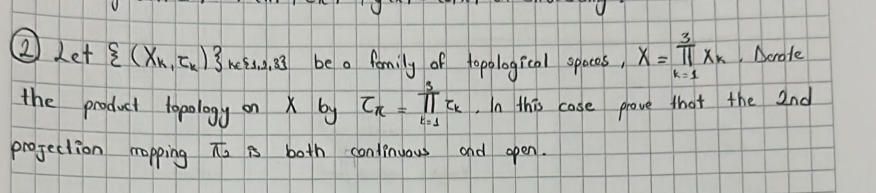 ② Let { (Xₖ, τₖ) } k∈{1,2,3} be a family of topological spaces, X = ∏_{k=1}^{3} Xₖ. Denote
the product topology on X by τ_π = ∏_{k=1}^{3} τₖ. In this case prove that the 2nd
projection mapping π₂ is both continuous and open.